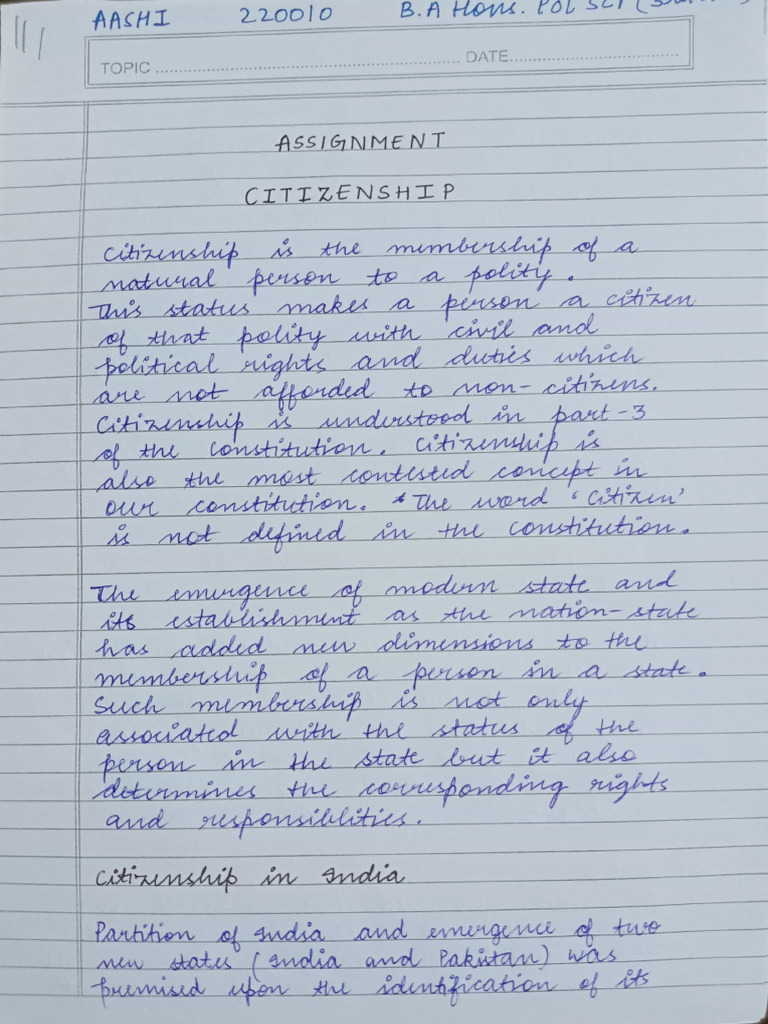 AASHI 220010 B.A Hons. POL SCI
TOPIC ........ DATE........
ASSIGNMENT
CITIZENSHIP
Citizenship is the membership of a
natural person to a polity.
This status makes a person a citizen
of that polity with civil and
political rights and duties which
are not afforded to non-citizens.
Citizenship is understood in part-3
of the constitution. Citizenship is
also the most contested concept in
our constitution. * The word 'citizen'
is not defined in the constitution.
The emergence of modern state and
its establishment as the nation-state
has added new dimensions to the
membership of a person in a state.
Such membership is not only
associated with the status of the
person in the state but it also
determines the corresponding rights
and responsiblities.
Citizenship in India
Partition of India and emergence of two
new states (India and Pakistan) was
premised upon the identification of its